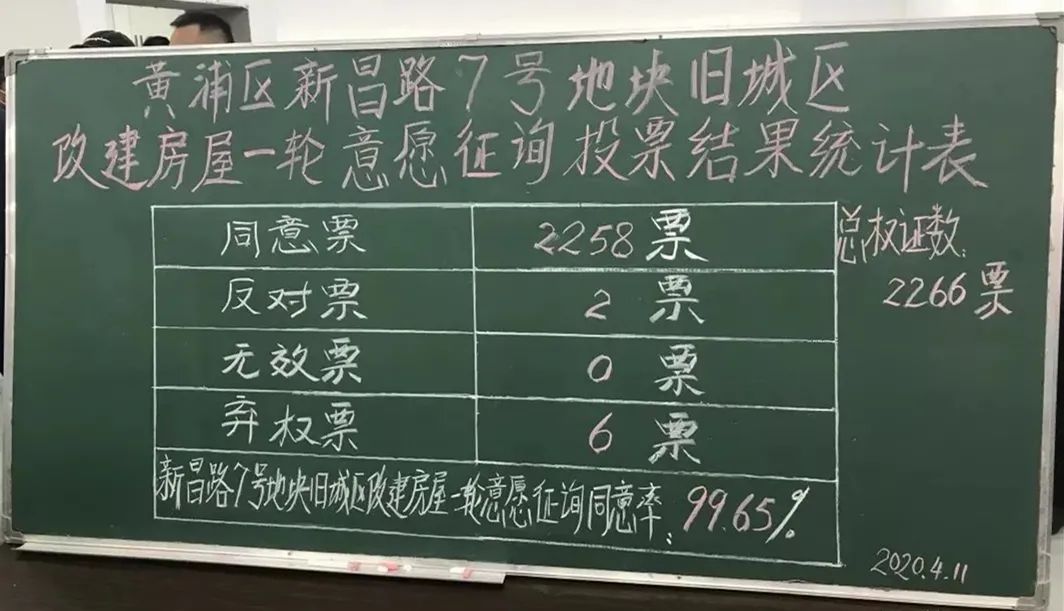 黄浦区新昌路7号地块旧城区
改建房屋一轮意愿征询投票结果统计表
同意票 2258票
总权证数:
2266票
反对票 2 票
无效票 0 票
弃权票 6 票
新昌路7号地块旧城区改建房屋一轮意愿征询同意率: 99.65%
2020.4.11